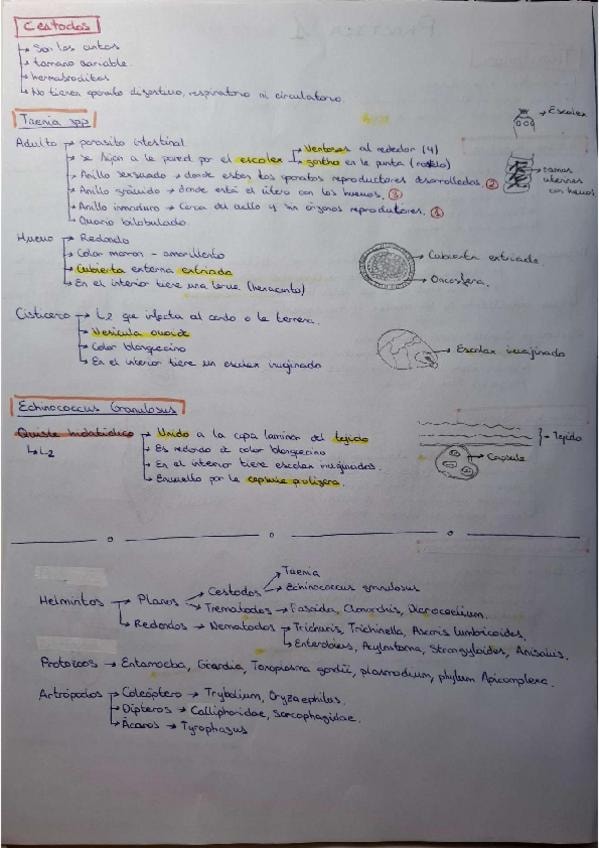 Cestodos
→ Son los cintas
→ tamaño variable.
→ hermafroditas
→ No tienen aparato digestivo, respiratorio ni circulatorio.
Taenia spp
→ Escolex
Adulto → parásito intestinal
→ se fijan a la pared por el escolex → Ventosas al rededor (4)
→ gancho en la punta (rostelo)
→ Anillo sexuado → donde estan los aparatos reproductores desarrollados. ②
→ Anillo grávido → donde está el útero con los huevos. ③
→ ramas uterinas con huevos
→ Anillo inmaduro → Cerca del cuello y sin órganos reproductores. ①
→ Ovario bilobulado.
Huevo → Redondo
→ Color marron - amarillento
→ Cubierta externa estriada
→ En el interior tiene una larva (hexacanto)
→ Cubierta estriada
→ Oncosfera.
Cisticerco → L2 que infecta al cerdo o la ternera.
→ Vesícula ovoide
→ Color blanquecino
→ En el interior tiene un escolex invaginado
→ Escolex invaginado
Echinococcus Granulosus
Quiste hidatídico → Unido a la capa laminar del tejido
↳ L2
→ Es redondo de color blanquecino
→ En el interior tiene escolex invaginados.
→ Envuelto por la capsula
→ Tejido
→ Capsula
Helmintos → Planos → Cestodos → Taenia
→ Echinococcus granulosus
→ Trematodos → Fasciola, Clonorchis, Dicrocoelium.
→ Redondos → Nematodos → Trichuris, Trichinella, Ascaris lumbricoides,
→ Enterobius, Ancylostoma, Strongyloides, Anisakis.
Protozoos → Entamoeba, Giardia, Toxoplasma gondii, plasmodium, phylum Apicomplexa.
Artrópodos → Coleóptero → Trybolium, Oryzaephilus.
→ Dípteros → Calliphoridae, Sarcophagidae.
→ Ácaros → Tyrophagus